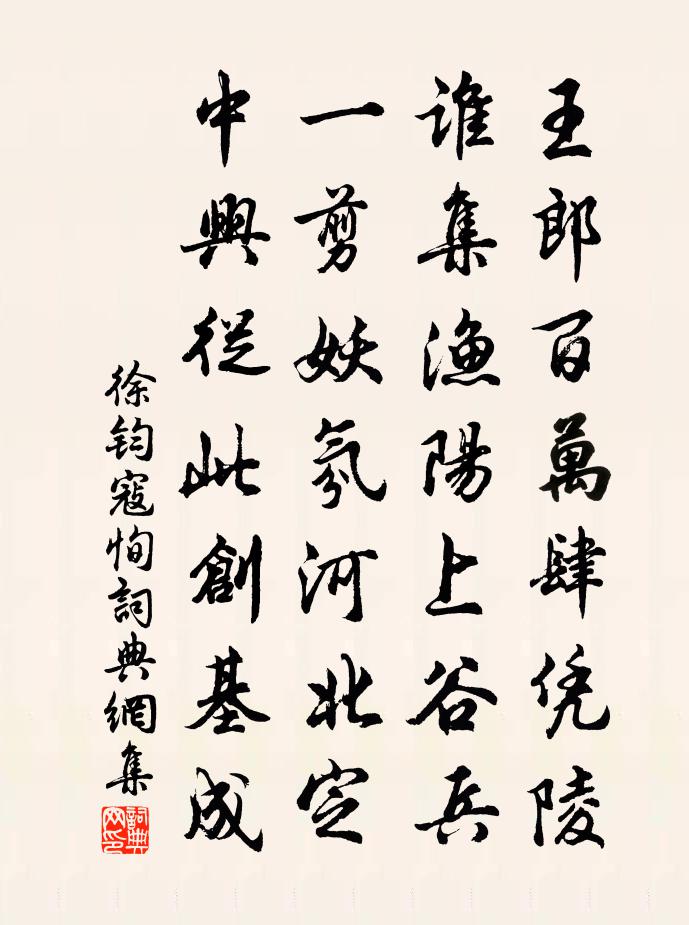 王郎百萬肆凭陵
誰集漁陽上谷兵
一剪妖氛河北定
中興從此創基成
徐鈞寇恂詞典網集
詞典網印